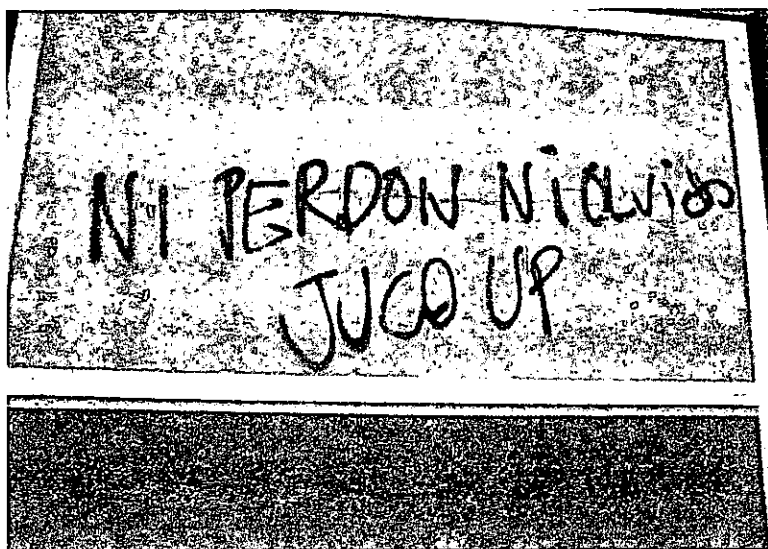 NI PERDON Ni olvido
JUCO UP